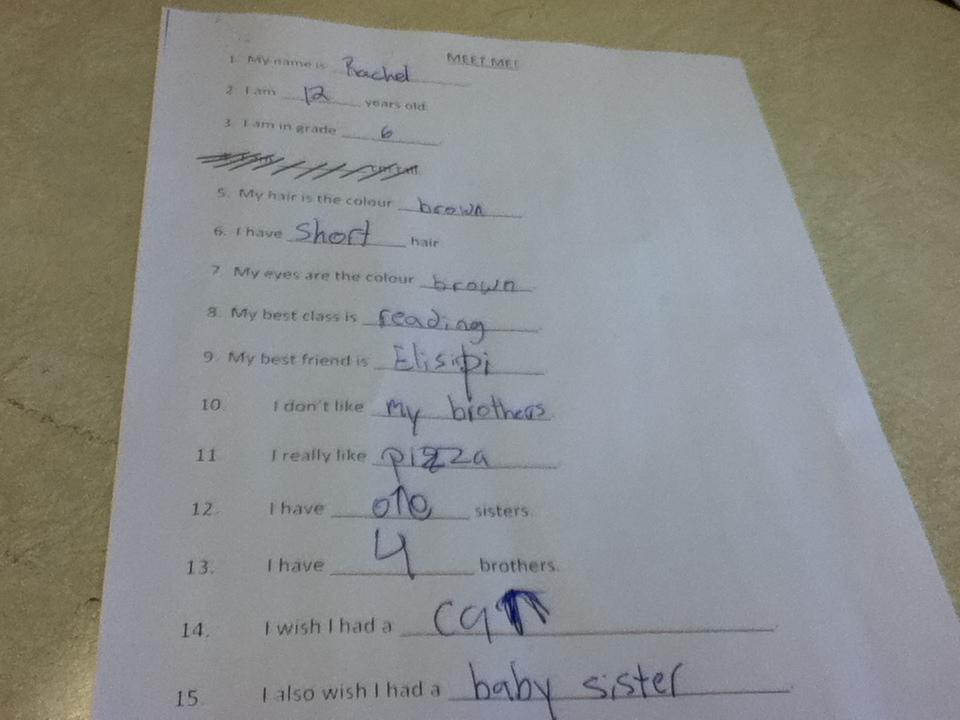 MEET ME!
1. My name is Rachel
2. I am 12 years old.
3. I am in grade 6
5. My hair is the colour brown
6. I have short hair
7. My eyes are the colour brown
8. My best class is reading
9. My best friend is Elisipi
10. I don't like my brothers
11. I really like pizza
12. I have one sisters.
13. I have 4 brothers.
14. I wish I had a
15. I also wish I had a baby sister